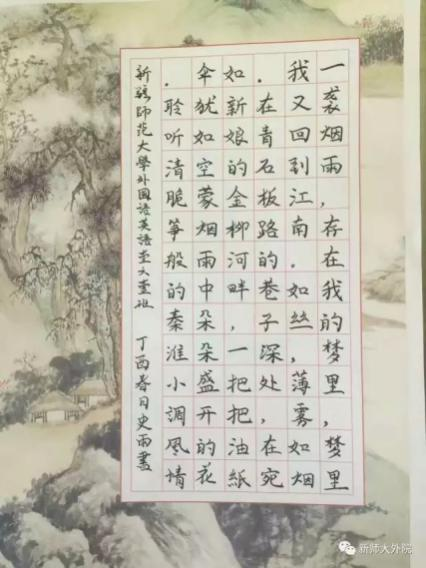 一袭烟雨，存在我的梦里，梦里
我又回到江南．如丝，薄雾如烟
．在青石板路的巷子深处，在宛
如新娘的金柳河畔，一把把油紙
伞犹如空蒙烟雨中朵朵盛开的花
．聆听清脆筝般的秦淮小调風情
新疆師范大學外国语英語壹六壹班 丁酉春日史雨書
新师大外院